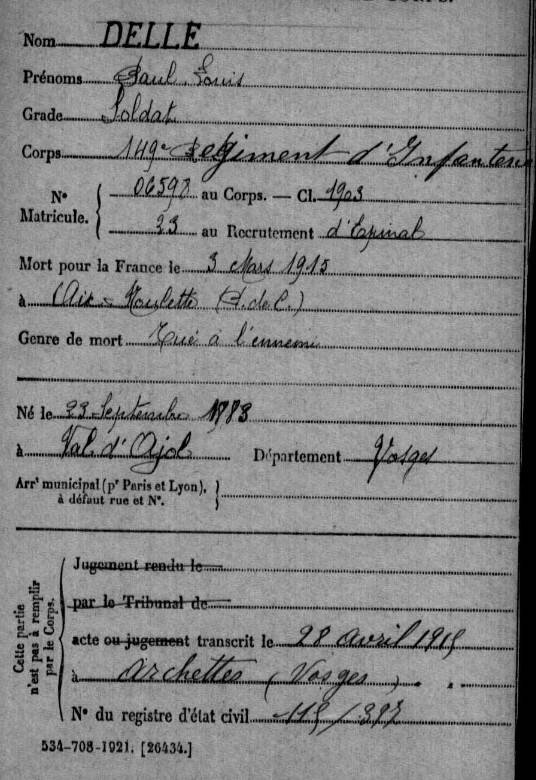 Nom DELLE
Prénoms Paul Louis
Grade Soldat
Corps 149e Regiment d'Infanterie
No Matricule. { 06597 au Corps. — Cl. 1903
23 au Recrutement d'Epinal
Mort pour la France le 3 Mars 1915
à Aix-Noulette (P. de C.)
Genre de mort Tué à l'ennemi
Né le 23 Septembre 1883
à Val d'Ajol Département Vosges
Arrt municipal (pr Paris et Lyon), }
à défaut rue et No.
Cette partie
n'est pas à remplir
par le Corps.
Jugement rendu le
par le Tribunal de
acte ou jugement transcrit le 28 avril 1915
à Archettes (Vosges)
No du registre d'état civil 115/397
534-708-1921. [26434.]